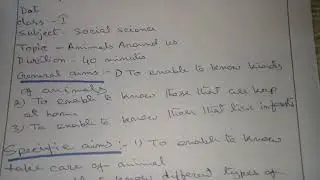 Dat
class - I
Subject - Social science
Topic - Animals Around us
Duration - 40 minutes
General aims :- 1) To enable to know kinds
of animals
2) To enable to know these that are keep
at home
3) To enable to know these that live in forests
Specific aims :- 1) To enable to know
take care of animal
to know different types of